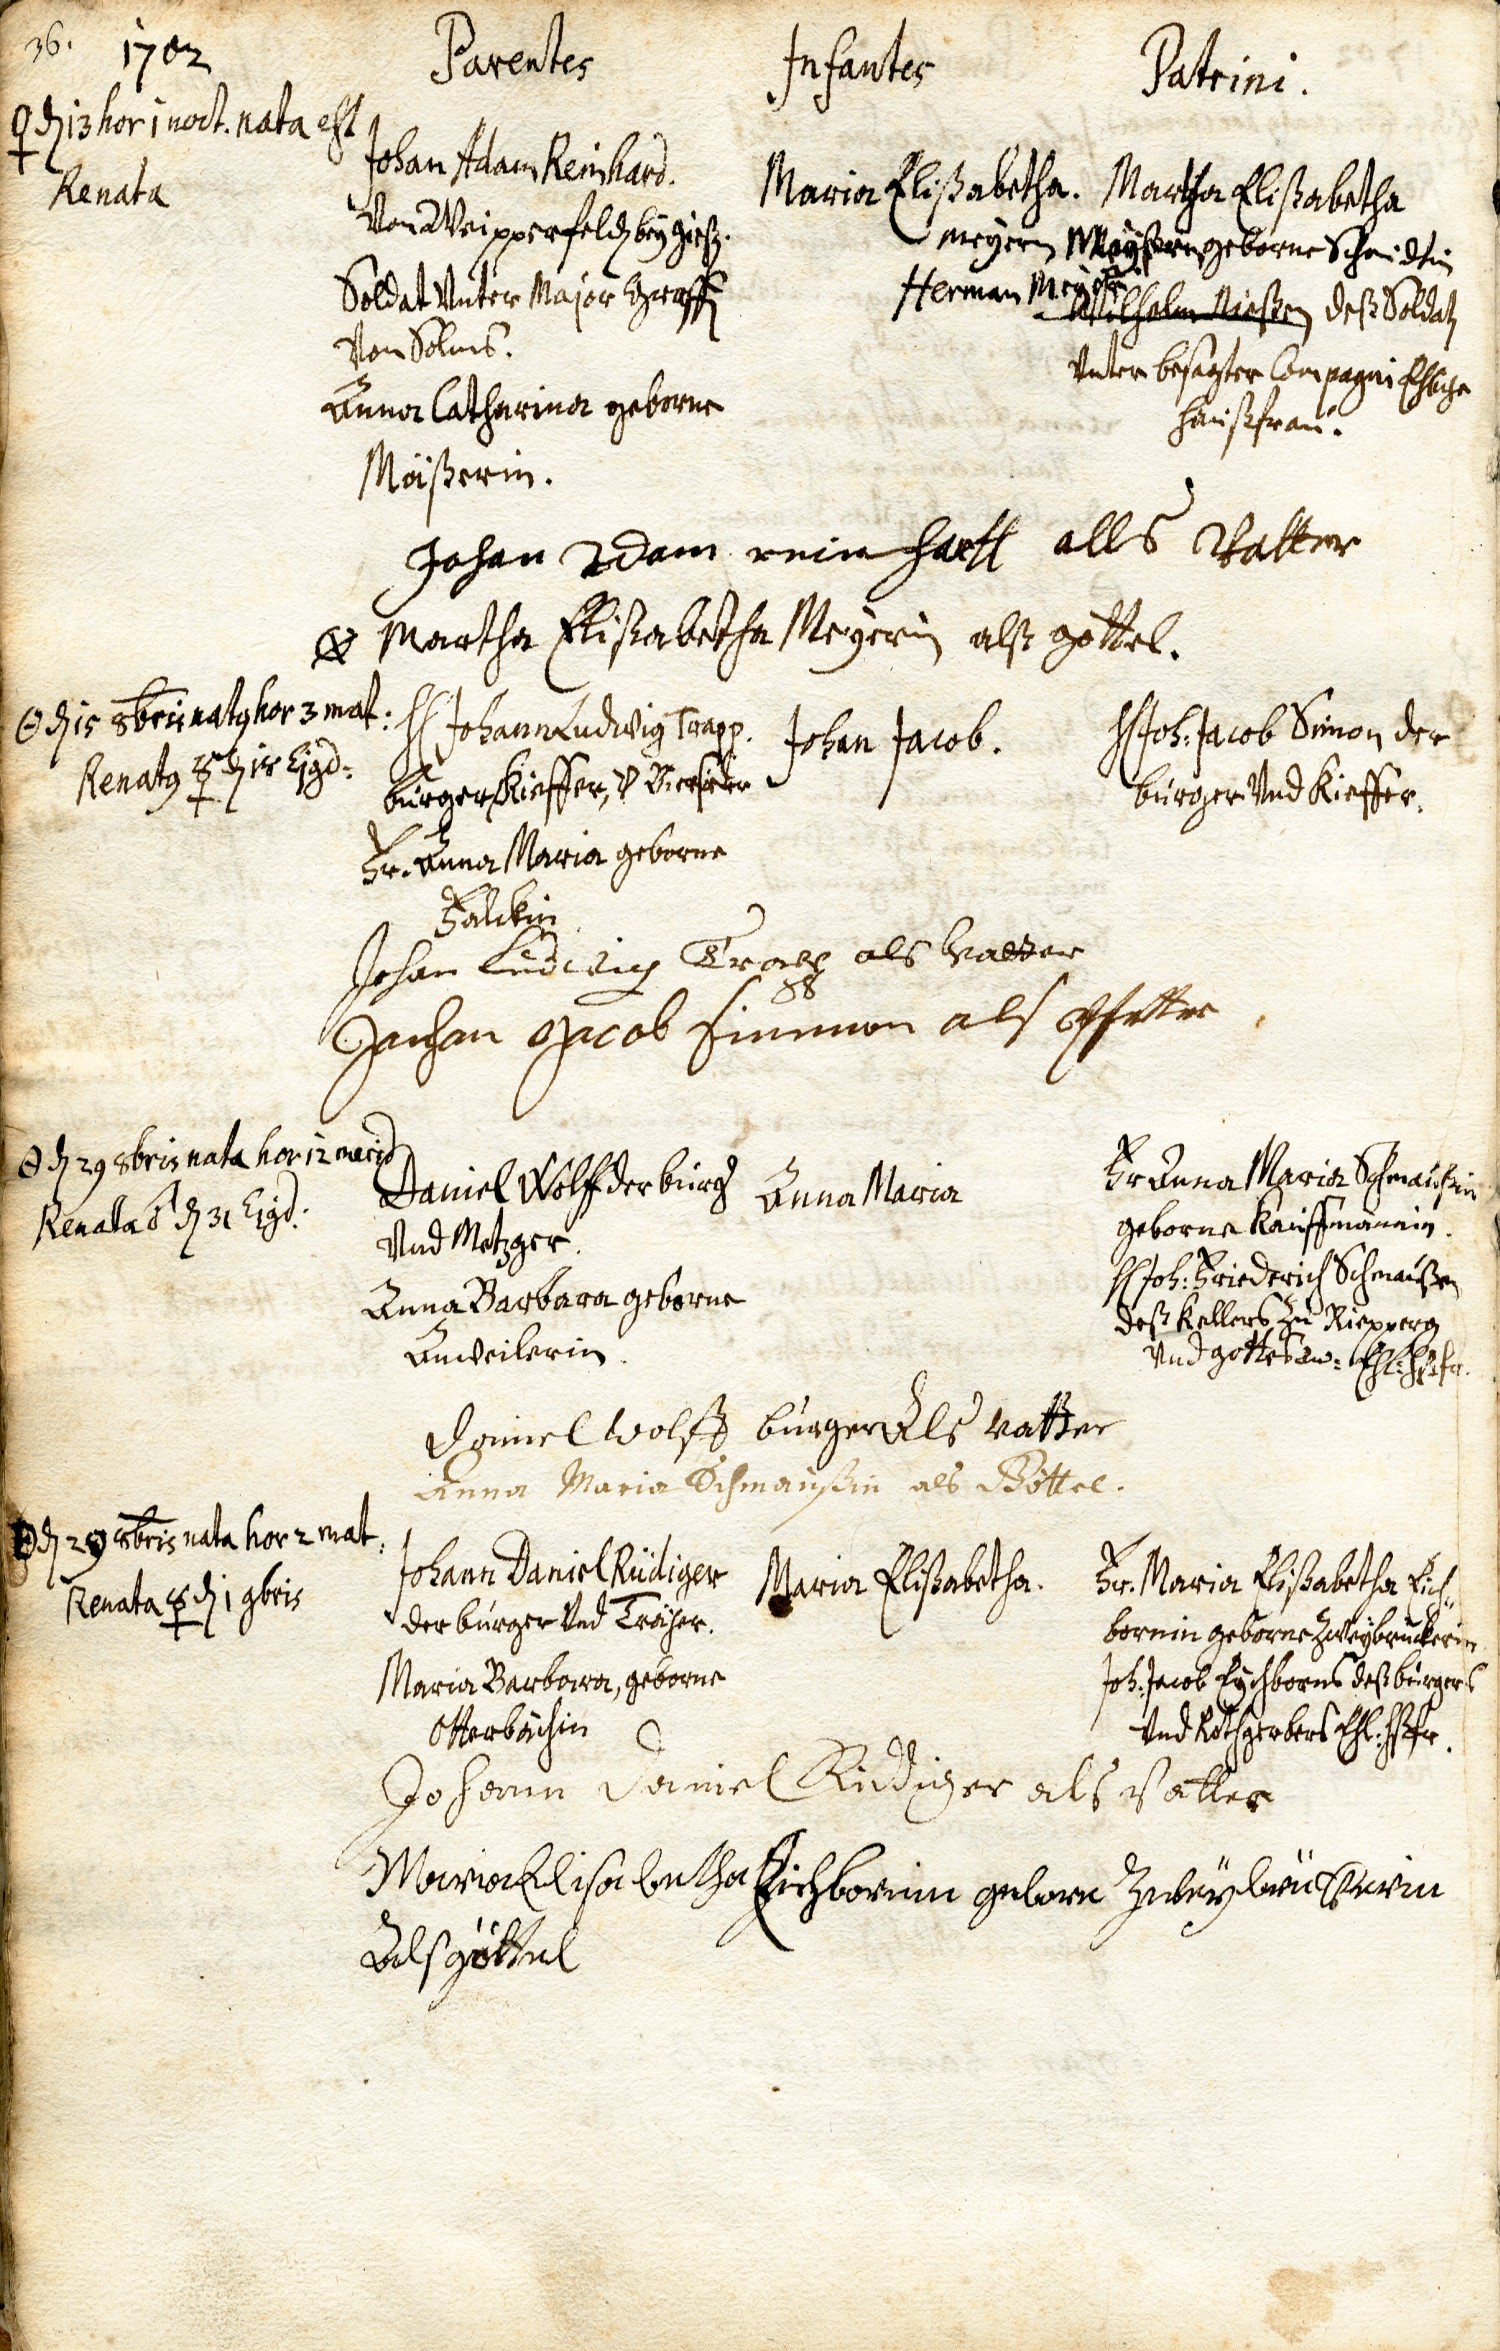 36. 1702
Parentes Infantes Patrini.
♀ d 13 hor 1 noct. nata est
Renata
Johan Adam Reinhard.
Von Weipperfeld bey gieß.
Soldat Unter Major Graff
Von Solms.
Anna Catharina geborne
Mäißerin.
Maria Elißabetha.
Martha Elißabetha
Meyern geborne Schmidtin
Herman Meyers
Wilhelm Nießen deß Soldatz
Unter besagter Compagni Ehliche
haußfrau.
Johan Adam reinhartt alls Vatter
Martha Elißabetha Meyerin alß göttel.
☉ d 15 8bris natq hor 3 mat:
Renatq ☿ d 18 Ejqd:
H Johann Ludwig Trapp.
burger, Kieffer, V Biersieder
Fr. Anna Maria geborne
Falckin
Johan Jacob.
H Joh: Jacob Simon der
burger Und Kieffer.
Johan Ludwig Trapp als Vatter
Janhan Jacob Simmon als Pfetter
☉ d 29 8bris nata hor 12 merid
Renata ♂ d 31 Ejqd:
Daniel Wolff der burg
Und Metzger.
Anna Barbara geborne
Anweilerin.
Anna Maria
Fr Anna Maria Schmaußin
geborne Kauffmännin.
H Joh: Friederich Schmaußen
deß Kellers Zu Riepperg
Und gottesaw: Ehl: hßfr.
Daniel Wolff burger Als vatter
Anna Maria Schmaußin als Göttel.
☉ d 29 8bris nata hor 2 mat:
Renata ☿ d 1 9bris
Johann Daniel Rüdiger
der burger Und Träher.
Maria Barbara, geborne
Otterbächin
Maria Elißabetha.
Fr. Maria Elißabetha Eich-
bornin geborne Zweybruckerin
Joh: Jacob Eychborns deß burgers
Und Rothgerbers Ehl: hßfr.
Johann Daniel Riddiger als Vatter
Maria Elisabetha Eichbornin geborn Zweybrückerin
Als göttel